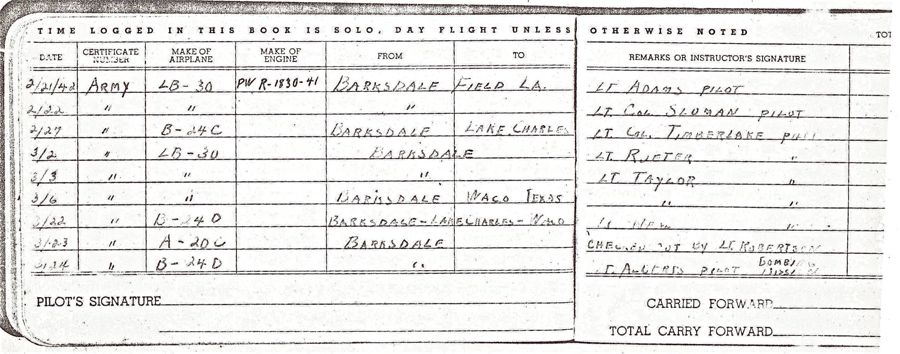 TIME LOGGED IN THIS BOOK IS SOLO, DAY FLIGHT UNLESS OTHERWISE NOTED
DATE CERTIFICATE NUMBER MAKE OF AIRPLANE MAKE OF ENGINE FROM TO REMARKS OR INSTRUCTOR'S SIGNATURE
2/21/42 ARMY LB-30 PW R-1830-41 BARKSDALE FIELD LA. LT ADAMS PILOT
2/22 " " " LT. COL SLOMAN PILOT
2/27 " B-24C BARKSDALE LAKE CHARLES LT. COL. TIMBERLAKE
3/2 " LB-30 BARKSDALE LT. "
3/3 " " " LT TAYLOR "
3/6 " " BARKSDALE WACO TEXAS " "
3/22 " B-24D BARKSDALE-LAKE CHARLES-WACO "
" A-20C BARKSDALE CHECKED OUT BY LT. ROBERTSON
" B-24D " PILOT
PILOT'S SIGNATURE
CARRIED FORWARD
TOTAL CARRY FORWARD